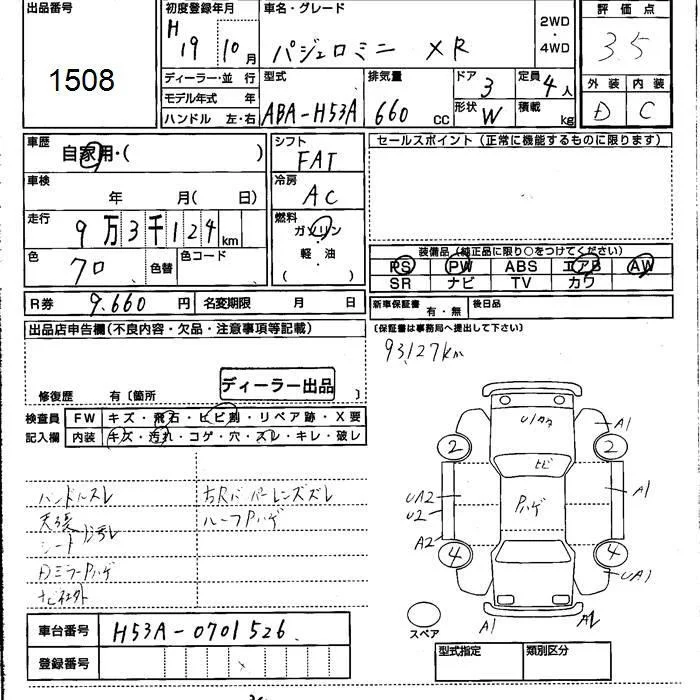 出品番号
1508
初度登録年月
H 19 10月
車名・グレード
パジェロミニ XR
2WD
・
4WD
評価点
3.5
外装 内装
D C
ディーラー・並 行
モデル年式 年
ハンドル 左・右
型式
ABA-H53A
排気量
660 CC
ドア 3
形状 W
定員 4人
積載 kg
車歴
自家用・( )
車検
年 月( 日)
走行
9万3千124km
色
70
色替
色コード
シフト
FAT
冷房
AC
燃料
ガソリン
軽・油
( )
セールスポイント(正常に機能するものに限ります)
装備品(純正品に限り○をつけてください)
PS PW ABS エアB AW
SR ナビ TV カワ
R券 9.660円
名変期限 月 日
新車保証書 有・無
後日品
(保証書は事務局へ提出して下さい)
出品店申告欄(不良内容・欠品・注意事項等記載)
93127km
修復歴 有〔箇所 〕
ディーラー出品
検査員
記入欄
FW キズ・飛石・ヒビ割・リペア跡・X要
内装 キズ・汚れ・コゲ・穴・スレ・キレ・破レ
ハンドルスレ
天張
シート
DミラーPハゲ
右Rバンパーレンズズレ
ルーフPハゲ
U1カタ
A1
2
2
ヒビ
Pハゲ
UA2
U2
A1
A2
4
4
UA1
A1
スペア
車台番号 H53A-0701526
登録番号
型式指定 類別区分